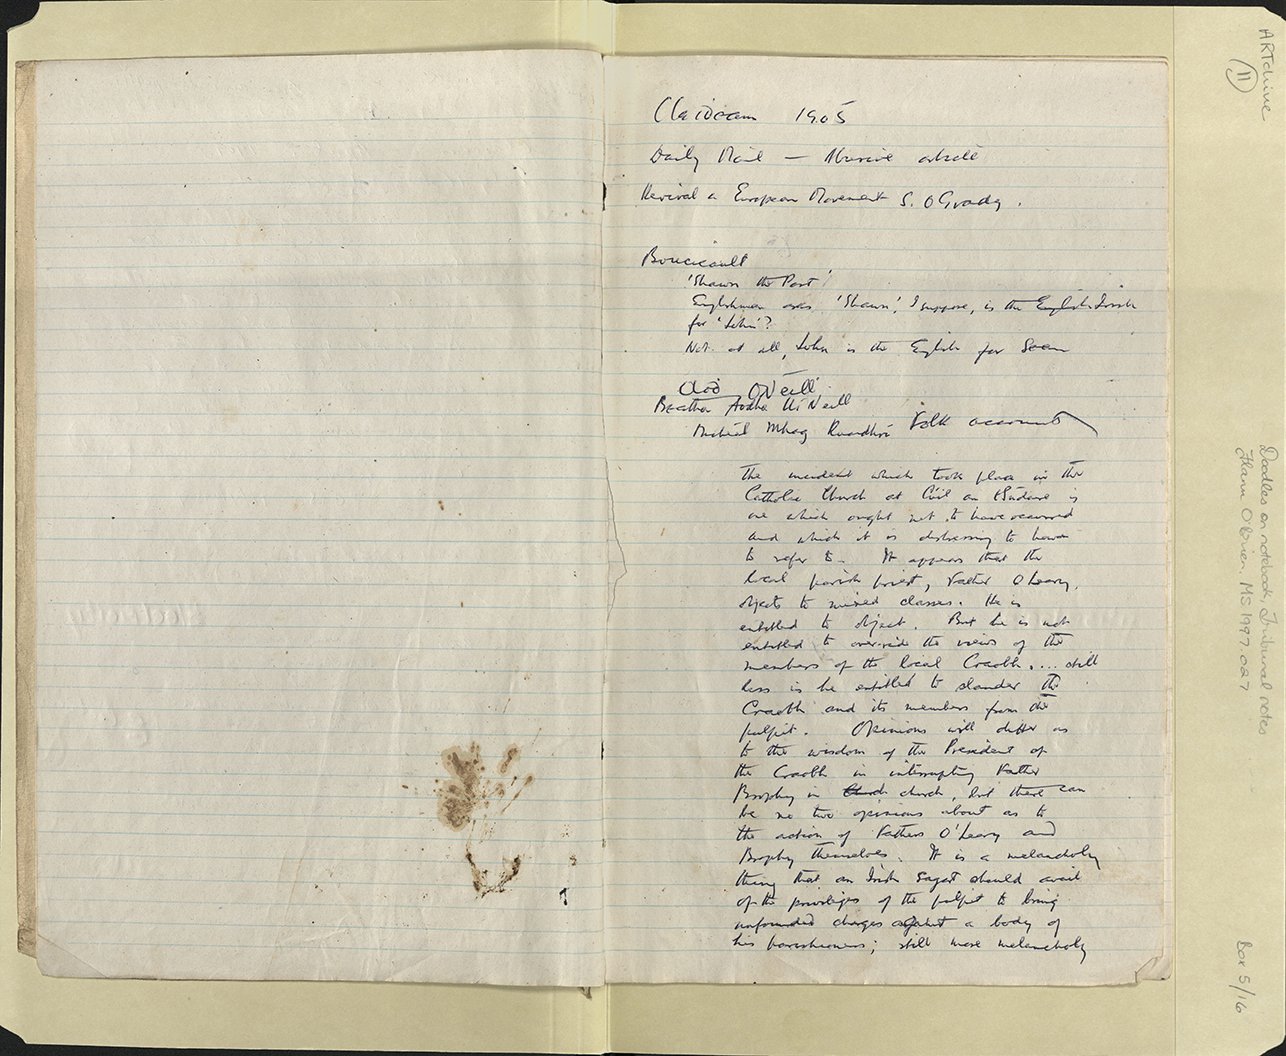 Claideam 1905
Daily Mail — Abusive article
Revival a European Movement S. O Grady.
Boucicault
'Shawn the Post'
Englishman asks 'Shawn', I suppose, is the English Irish
for 'John'?
Not at all, John is the English for Sean
Aod O'Neill
Beatha Aodha Uí Neill
Micheál Mhag Ruaidhri Folk account
The incident which took place in the
Catholic Church at Cúil an tSúdaire is
one which ought not to have occurred
and which it is distressing to have
to refer to. It appears that the
local parish priest, Father O'Leary,
objects to mixed classes. He is
entitled to object. But he is not
entitled to over-ride the views of the
members of the local Craobh.... still
less is he entitled to slander the
Craobh and its members from the
pulpit. Opinions will differ as
to the wisdom of the President of
the Craobh in interrupting Father
Brophy in church, but there can
be no two opinions about as to
the action of Fathers O'Leary and
Brophy themselves. It is a melancholy
thing that an Irish Sagart should avail
of the privileges of the pulpit to bring
unfounded charges against a body of
his parishioners; still more melancholy
ARTchive
11
Doodles on notebook, Tribunal notes
Flann O'Brien. MS.1997.027
Box 5/16